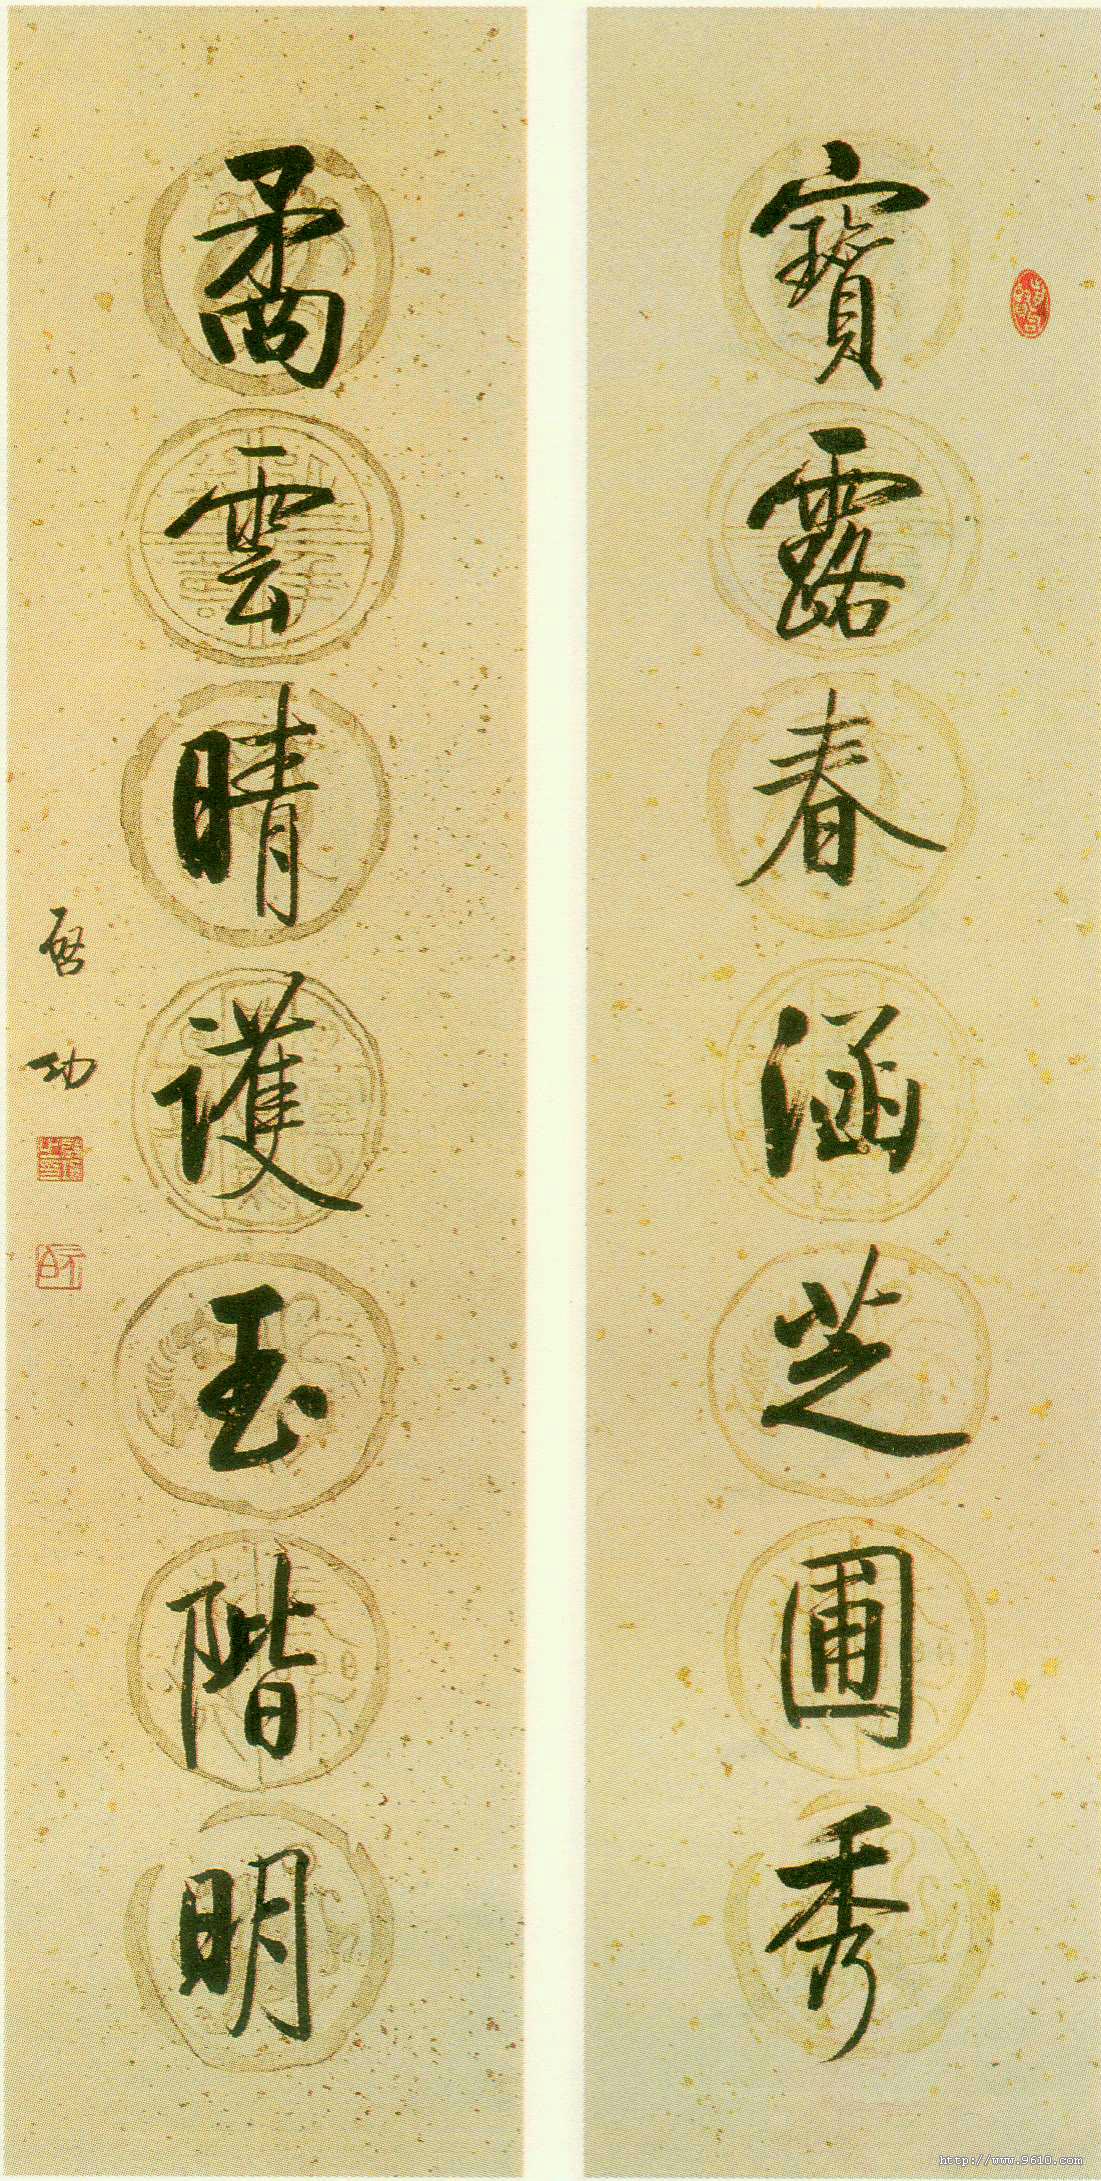 寶露春涵芝圃秀
矞雲晴護玉階明
啓功
http://www.9610.com